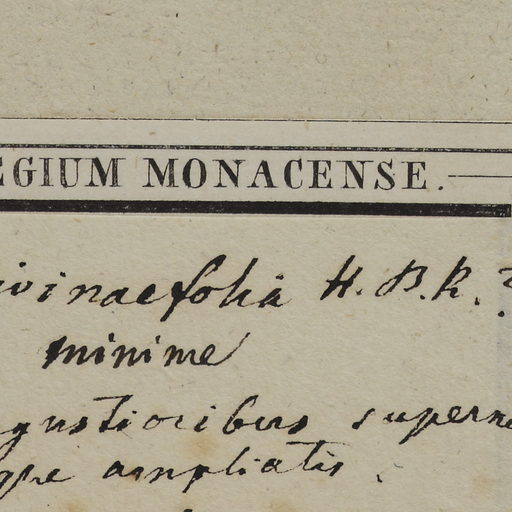 EGIUM MONACENSE.
ivinaefolia H. B. K. ?
minime
gustioribus superne
que ampliatis.